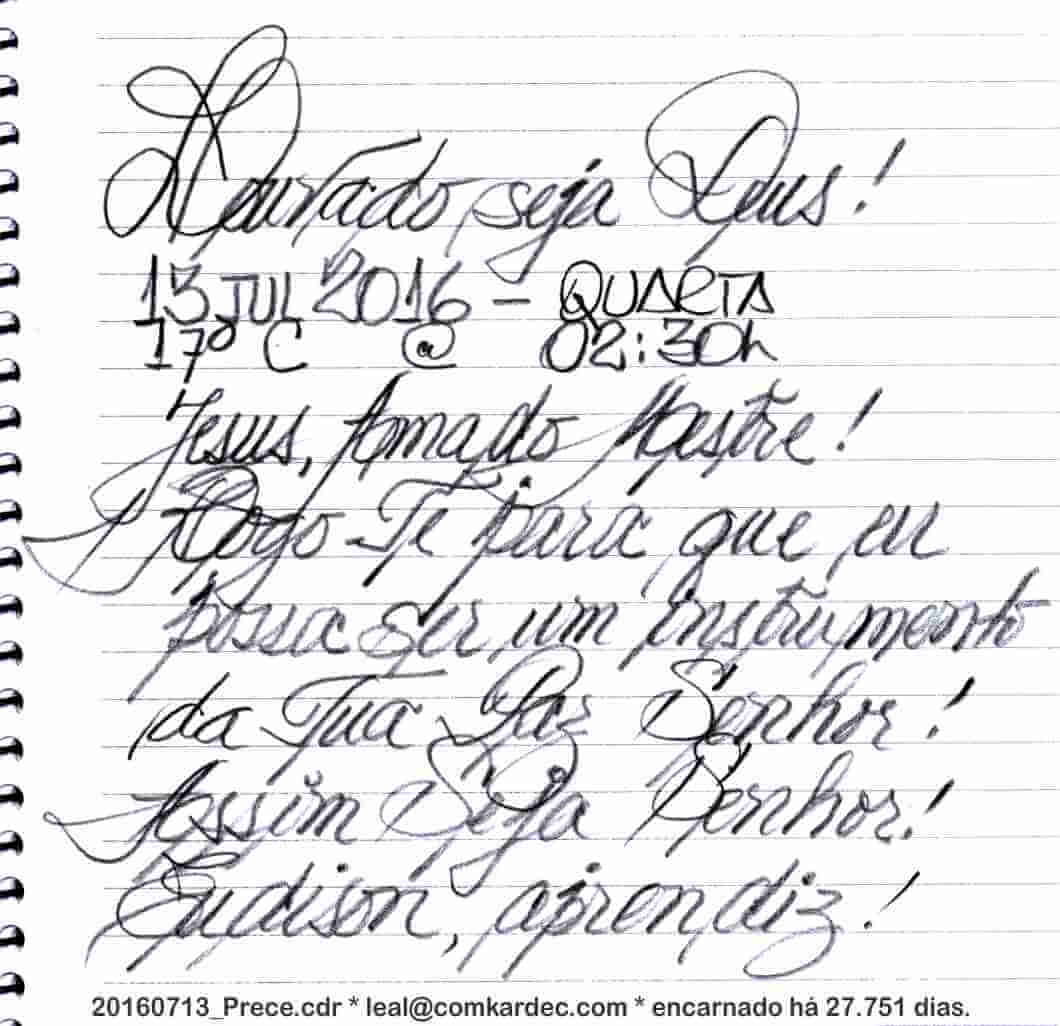 Louvado seja Deus!
13 JUL 2016 - QUARTA
17º C @ 02:30h
Jesus, Amado Mestre!
Rogo-Te para que eu
possa ser um instrumento
da Tua Paz Senhor!
Assim Seja Senhor!
Eudison, aprendiz!
20160713_Prece.cdr * leal@comkardec.com * encarnado há 27.751 dias.